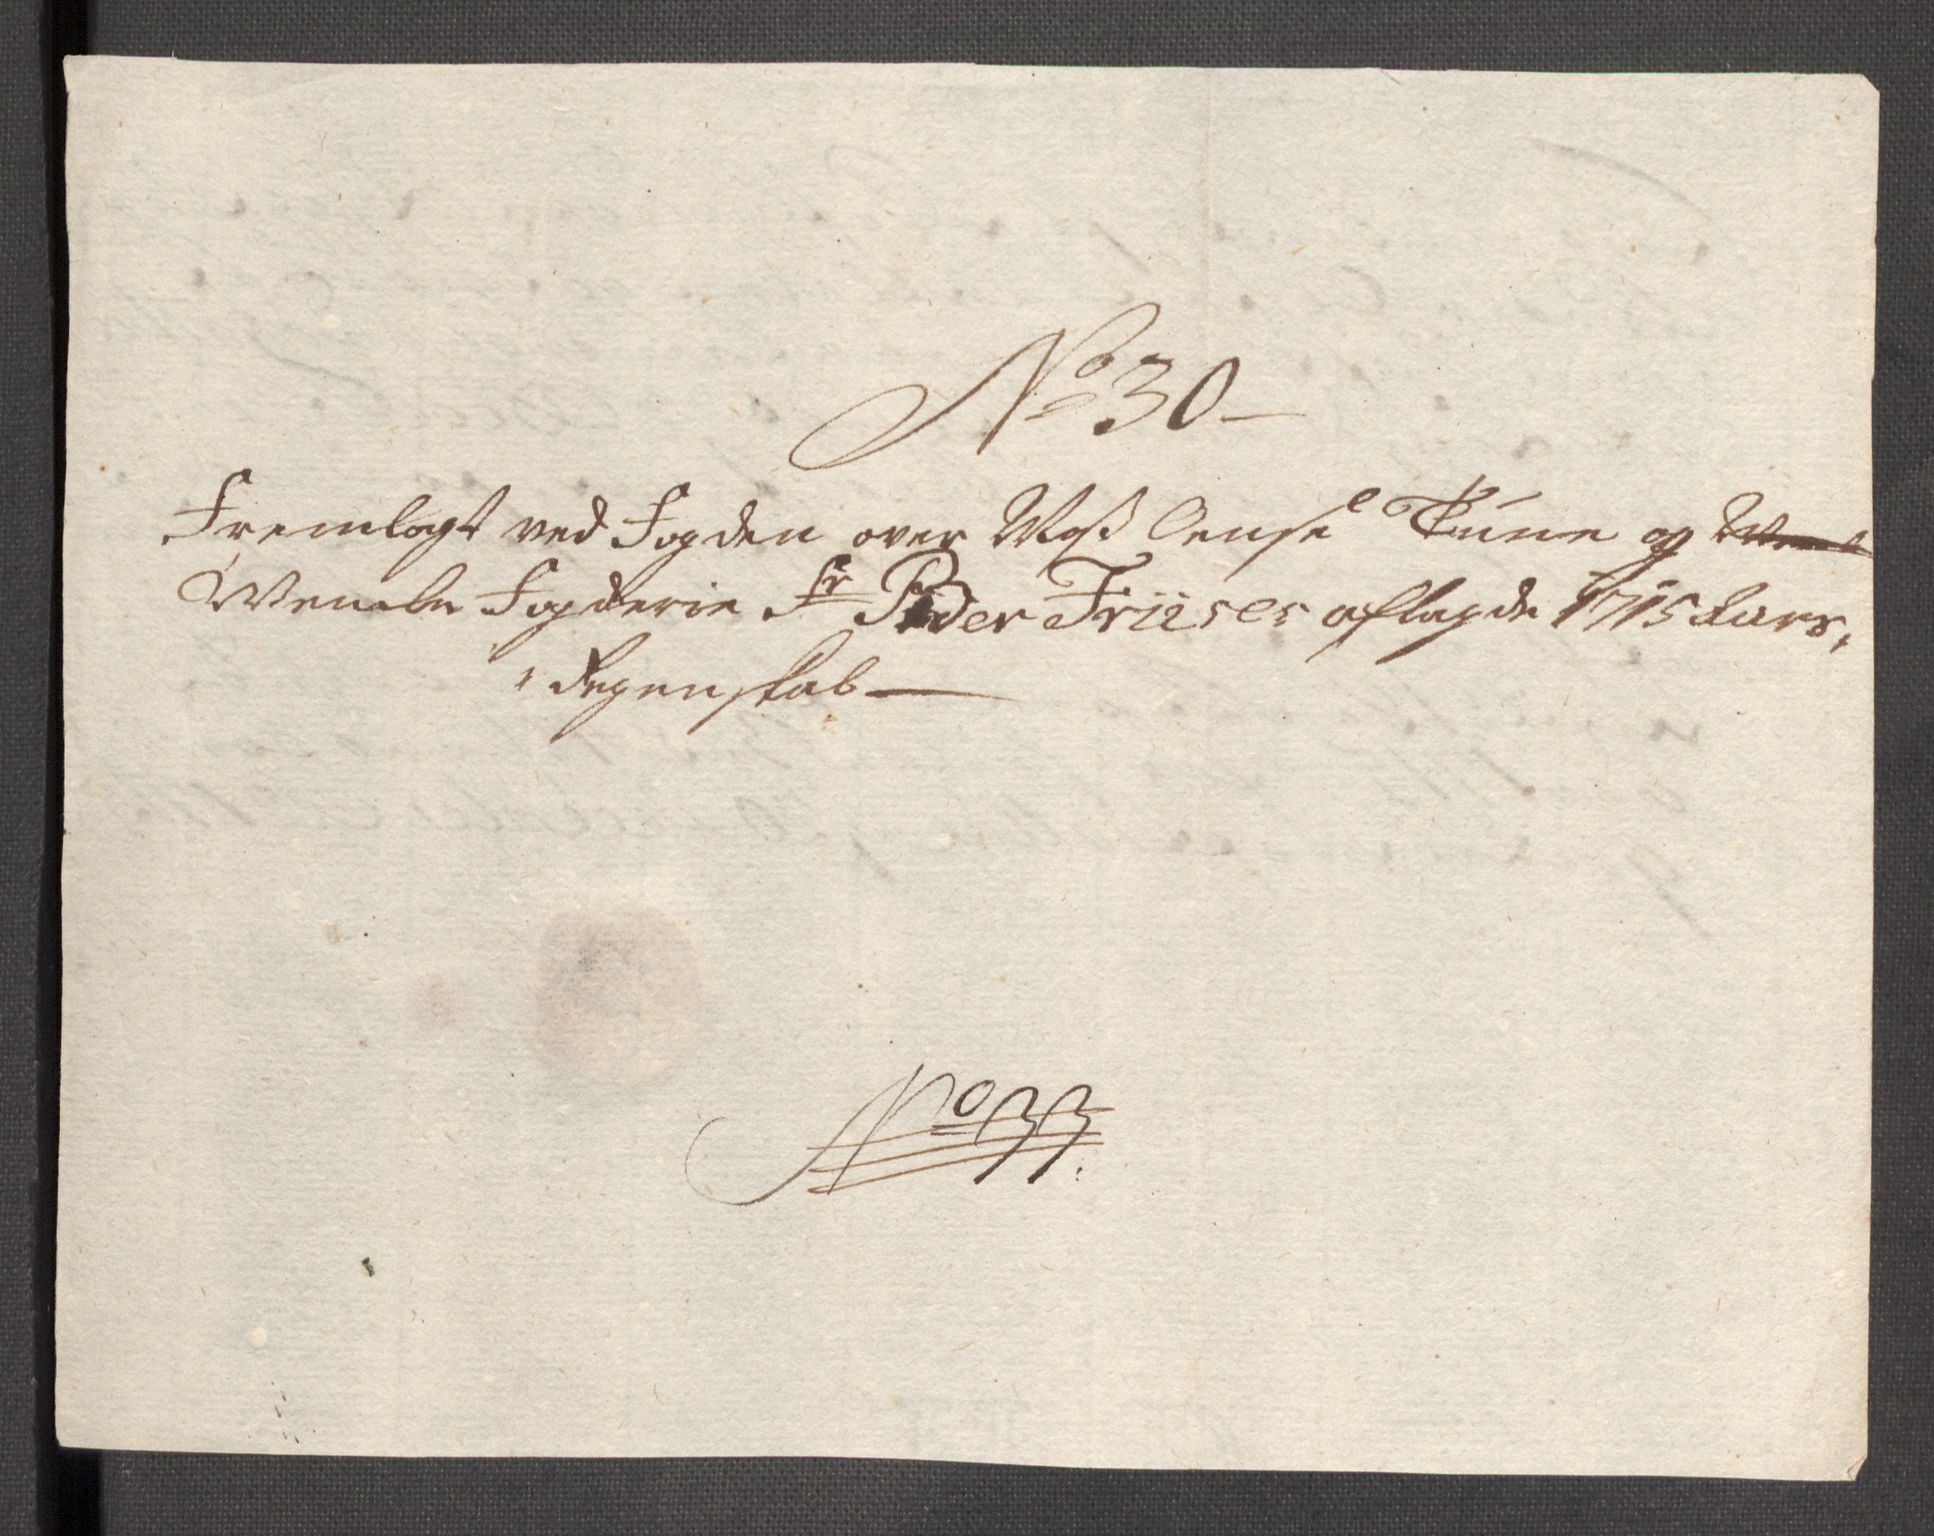 No 30
Fremlagt ved Fogden over Moss Aense Tune og
Wemele Fogderie Sr Peder Friises aflagde 1715 Aars
Regenskab
No 33.